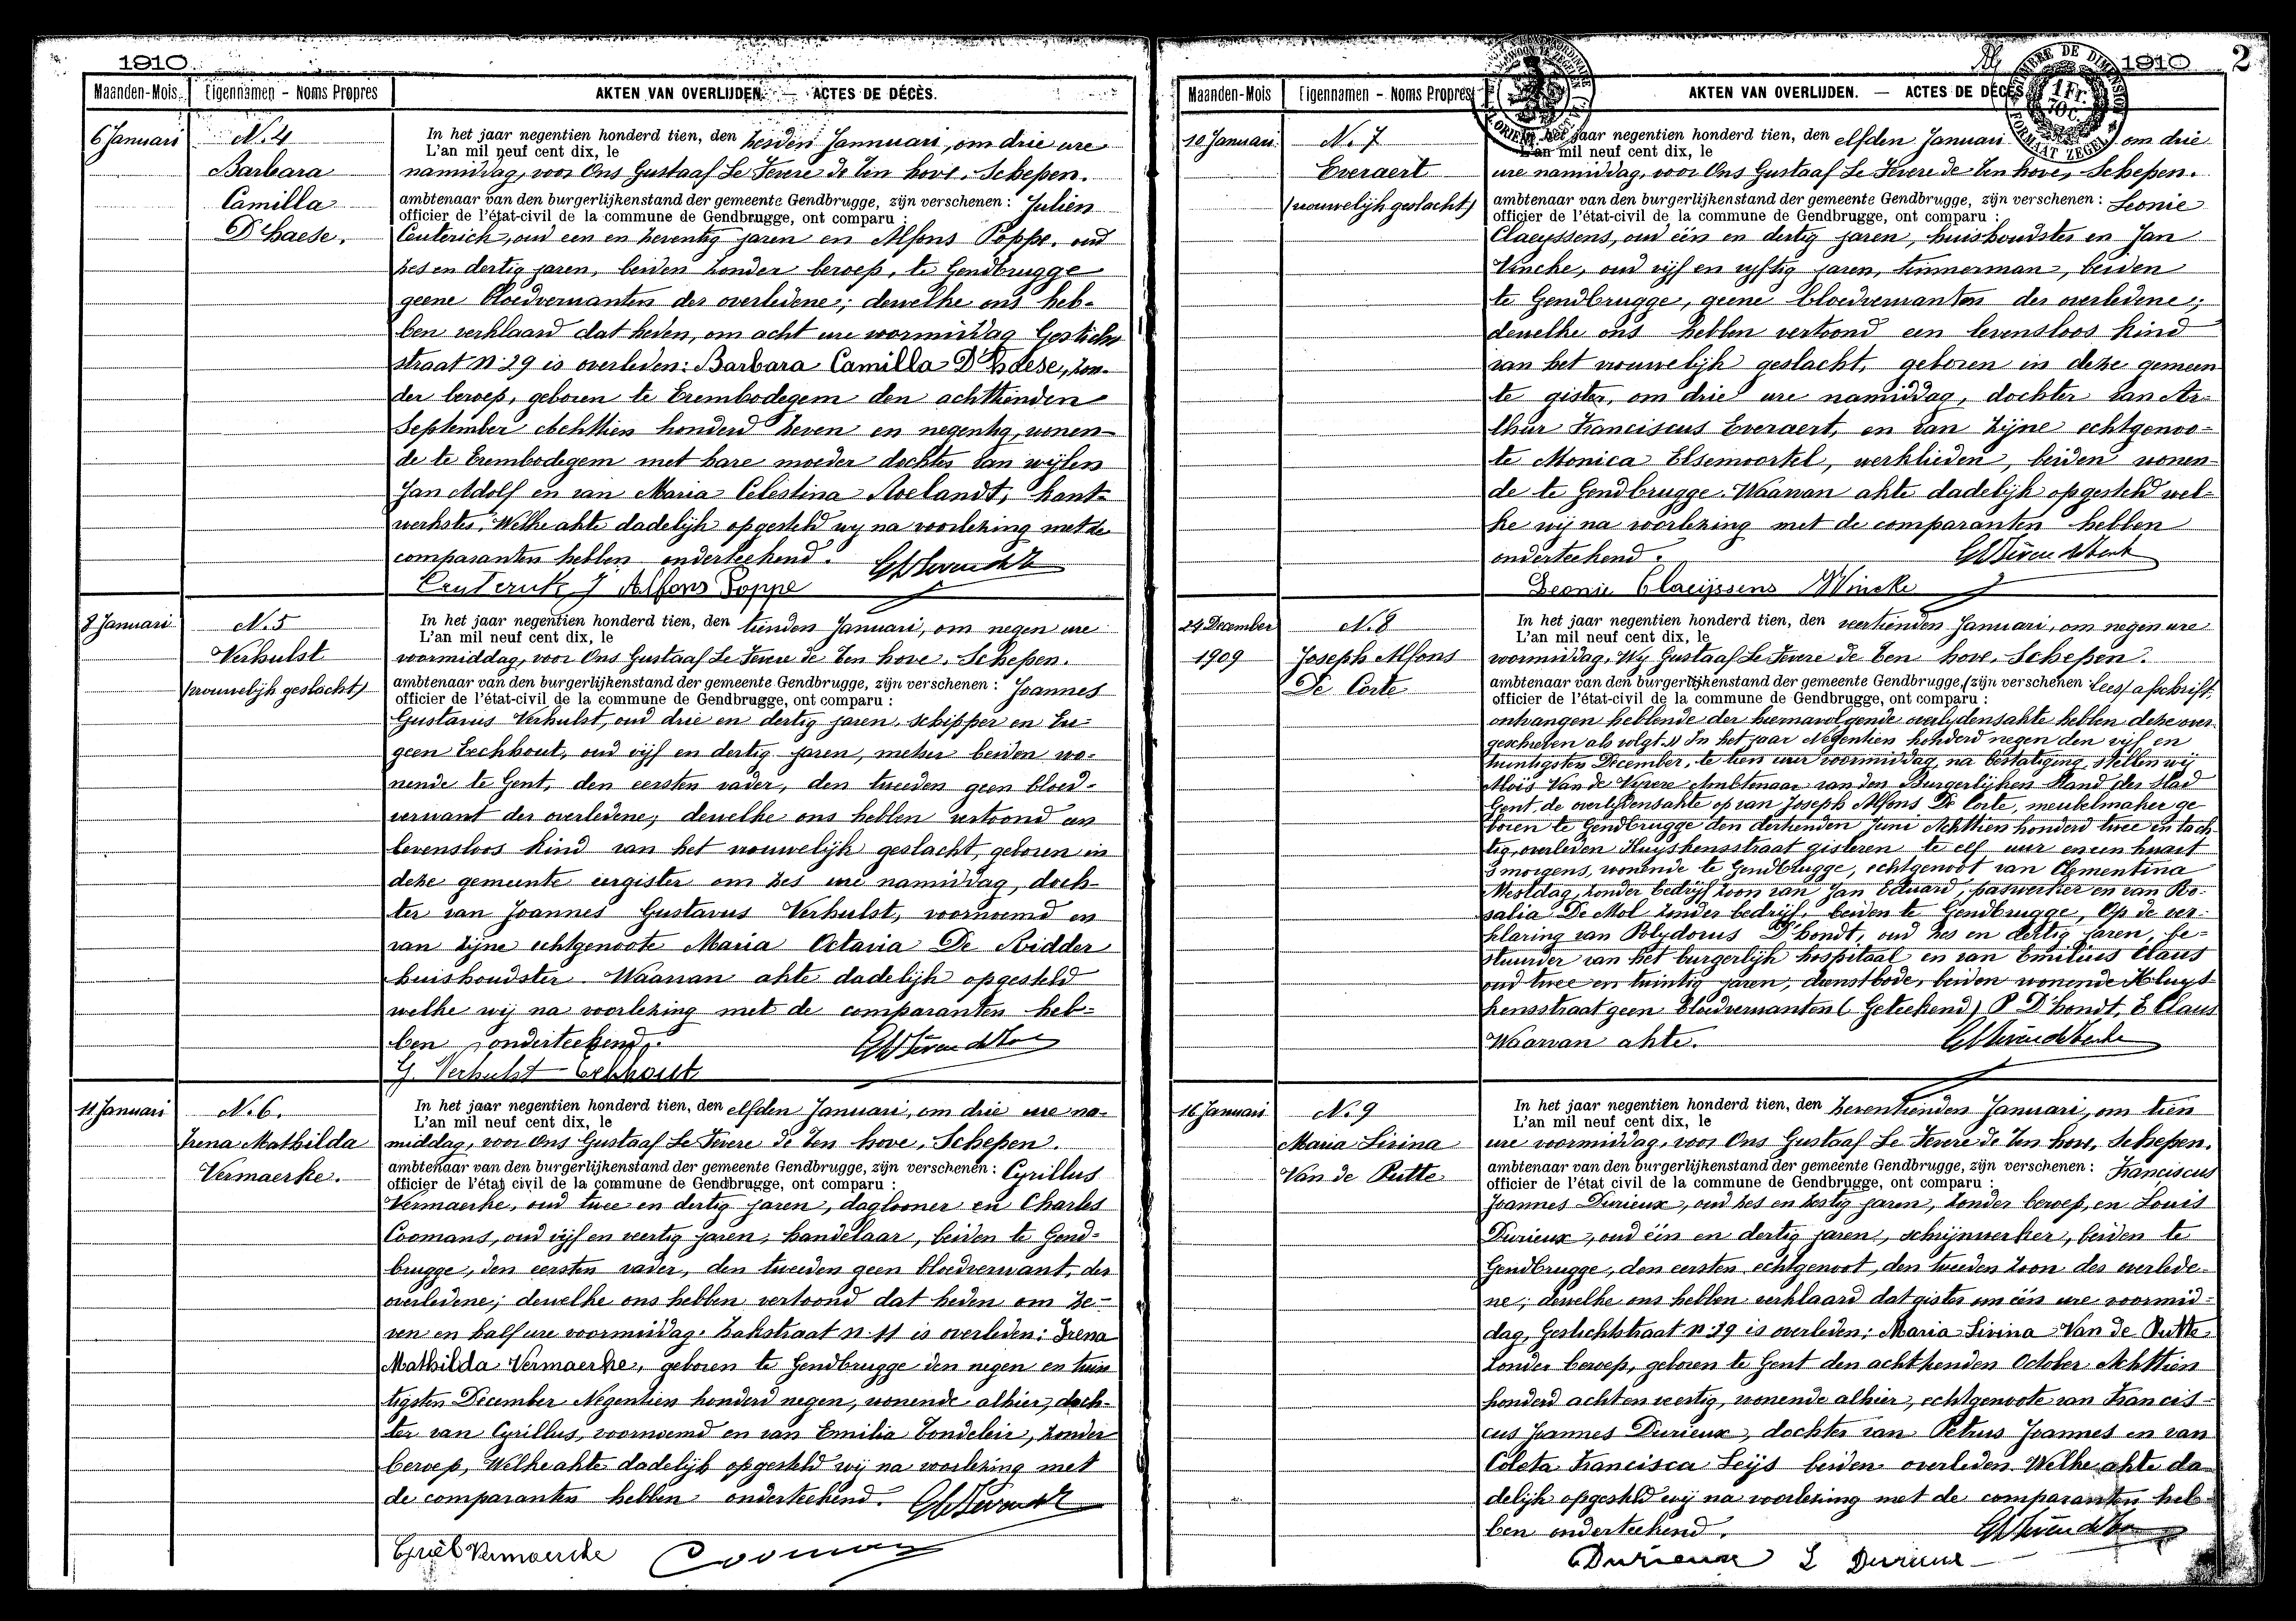 1910
Maanden-Mois Eigennamen - Noms Propres AKTEN VAN OVERLIJDEN. — ACTES DE DÉCÈS.
6 Januari
N. 4
Barbara
Camilla
D'haese.
In het jaar negentien honderd tien, den zesden Jannuari, om drie ure
L'an mil neuf cent dix, le
namiddag, voor Ons Gustaaf Le Fevere de Ten hove, Schepen.
ambtenaar van den burgerlijkenstand der gemeente Gendbrugge, zijn verschenen: Julien
officier de l'état-civil de la commune de Gendbrugge, ont comparu:
Ceuterick, oud een en zeventig jaren en Alfons Poppe, oud
zes en dertig jaren, beiden zonder beroep, te Gendbrugge
geene bloedverwanten der overledene; dewelke ons heb-
ben verklaard dat heden, om acht ure voormiddag Gesticht
straat n: 29 is overleden: Barbara Camilla D'haese, zon-
der beroep, geboren te Erembodegem den achttienden
September Achttien honderd zeven en negentig, wonen-
de te Erembodegem met hare moeder dochter van wijlen
Jan Adolf en van Maria Celestina Roelandt, kant-
werkster. Welke akte dadelijk opgesteld wij na voorlezing met de
comparanten hebben onderteekend.
Ceuterick J Alfons Poppe
8 Januari
N. 5
Verhulst
(vrouwelijk geslacht)
In het jaar negentien honderd tien, den tienden Januari, om negen ure
L'an mil neuf cent dix, le
voormiddag, voor Ons Gustaaf Le Fevere de Ten hove, Schepen.
ambtenaar van den burgerlijkenstand der gemeente Gendbrugge, zijn verschenen: Joannes
officier de l'état-civil de la commune de Gendbrugge, ont comparu:
Gustavus Verhulst, oud drie en dertig jaren, schipper en Eu-
geen Eeckhout, oud vijf en dertig jaren, metser beiden wo-
nende te Gent, den eersten vader, den tweeden geen bloed-
verwant der overledene; dewelke ons hebben vertoond een
levensloos kind van het vrouwelijk geslacht, geboren in
deze gemeente eergister om zes ure namiddag, doch-
ter van Joannes Gustavus Verhulst, voornoemd en
van zijne echtgenoote Maria Octavia De Ridder
huishoudster. Waarvan akte dadelijk opgesteld
welke wij na voorlezing met de comparanten heb-
ben onderteekend.
G. Verhulst Eekhout
11 Januari
N. 6.
Irena Mathilda
Vermaerke.
In het jaar negentien honderd tien, den elfden Januari, om drie ure na-
L'an mil neuf cent dix, le
middag, voor Ons Gustaaf Le Fevere de Ten hove, Schepen.
ambtenaar van den burgerlijkenstand der gemeente Gendbrugge, zijn verschenen: Cyrillus
officier de l'état civil de la commune de Gendbrugge, ont comparu:
Vermaerke, oud twee en dertig jaren, daglooner en Charles
Coomans, oud vijf en veertig jaren, handelaar, beiden te Gend-
brugge, den eersten vader, den tweeden geen bloedverwant, der
overledene; dewelke ons hebben vertoond dat heden om ze-
ven en half ure voormiddag. Zakstraat n: 11 is overleden: Irena
Mathilda Vermaerke, geboren te Gendbrugge den negen en twin
tigsten December Negentien honderd negen, wonende alhier, doch-
ter van Cyrillus, voornoemd en van Emilia Tondeleir, zonder
beroep, Welke akte dadelijk opgesteld wij na voorlezing met
de comparanten hebben onderteekend.
Cyriel Vermaercke Cooman
1910 2
Maanden-Mois Eigennamen - Noms Propres AKTEN VAN OVERLIJDEN. — ACTES DE DÉCÈS
10 Januari
N. 7
Everaert
(vrouwelijk geslacht)
In het jaar negentien honderd tien, den elfden Januari om drie
L'an mil neuf cent dix, le
ure namiddag, voor Ons Gustaaf Le Fevere de Ten hove, Schepen.
ambtenaar van den burgerlijkenstand der gemeente Gendbrugge, zijn verschenen: Leonie
officier de l'état-civil de la commune de Gendbrugge, ont comparu:
Claeyssens, oud één en dertig jaren, huishoudster en Jan
Vincke, oud vijf en vyftig jaren, timmerman, beiden
te Gendbrugge, geene bloedverwanten der overledene;
dewelke ons hebben vertoond een levensloos kind
van het vrouwelijk geslacht, geboren in deze gemeen
te gister, om drie ure namiddag, dochter van Ar-
thur Franciscus Everaert, en van zijne echtgenoo-
te Monica Elsemoortel, werklieden, beiden wonen-
de te Gendbrugge. Waarvan akte dadelijk opgesteld wel-
ke wij na voorlezing met de comparanten hebben
onderteekend.
Leonie Claeijssens Vincke
24 December
1909
N. 8
Joseph Alfons
De Corte
In het jaar negentien honderd tien, den veertienden Januari, om negen ure
L'an mil neuf cent dix, le
voormiddag, Wy Gustaaf Le Fevere de Ten hove, Schepen.
ambtenaar van den burgerlijkenstand der gemeente Gendbrugge, zijn verschenen (lees) afschrift,
officier de l'état-civil de la commune de Gendbrugge, ont comparu:
ontvangen hebbende der hiernavolgende overlydensakte hebben deze over-
geschreven als volgt. » In het jaar Negentien honderd negen den vijf en
twintigsten December, te tien uur voormiddag, na bestatiging, stellen wij
Aloïs Van de Vyvere Ambtenaar van den Burgerlijken Stand der Stad
Gent, de overlijdensakte op van Joseph Alfons De Corte, meubelmaker ge
boren te Gendbrugge den dertienden Juni Achttien honderd twee en tach-
tig, overleden Kluyskensstraat gisteren te elf uur en een kwart
s morgens, wonende te Gendbrugge, echtgenoot van Clementina
Mestdag, zonder bedrijf zoon van Jan Eduard, paswerker en van Ro-
salia De Mol zonder bedrijf, beiden te Gendbrugge, Op de ver-
klaring van Polydorus D'hondt, oud zes en dertig jaren, be-
stuurder van het burgerlijk hospitaal en van Emilius Claus
oud twee en twintig jaren, dienstbode, beiden wonende Kluys-
kensstraat geen bloedverwanten (Geteekend) P. D'hondt, E Claus
Waarvan akte.
16 Januari
N. 9
Maria Livina
Van de Putte
In het jaar negentien honderd tien, den zeventienden Januari, om tien
L'an mil neuf cent dix, le
ure voormiddag, voor Ons Gustaaf Le Fevere de Ten hove, Schepen.
ambtenaar van den burgerlijkenstand der gemeente Gendbrugge, zijn verschenen: Franciscus
officier de l'état civil de la commune de Gendbrugge, ont comparu:
Joannes Durieux, oud zes en zestig jaren, zonder beroep, en Louis
Durieux, oud één en dertig jaren, schrijnwerker, beiden te
Gendbrugge, den eersten echtgenoot, den tweeden zoon der overlede-
ne; dewelke ons hebben verklaard dat gister om één ure voormid-
dag, Gestichtstraat n: 19 is overleden; Maria Livina Van de Putte,
zonder beroep, geboren te Gent den achttienden October Achttien
honderd acht en veertig, wonende alhier, echtgenoote van Francis-
cus Joannes Durieux, dochter van Petrus Joannes en van
Coleta Francisca Leijs beiden overleden. Welke akte da-
delijk opgesteld wij na voorlezing met de comparanten heb-
ben onderteekend.
Durieux L Durieux